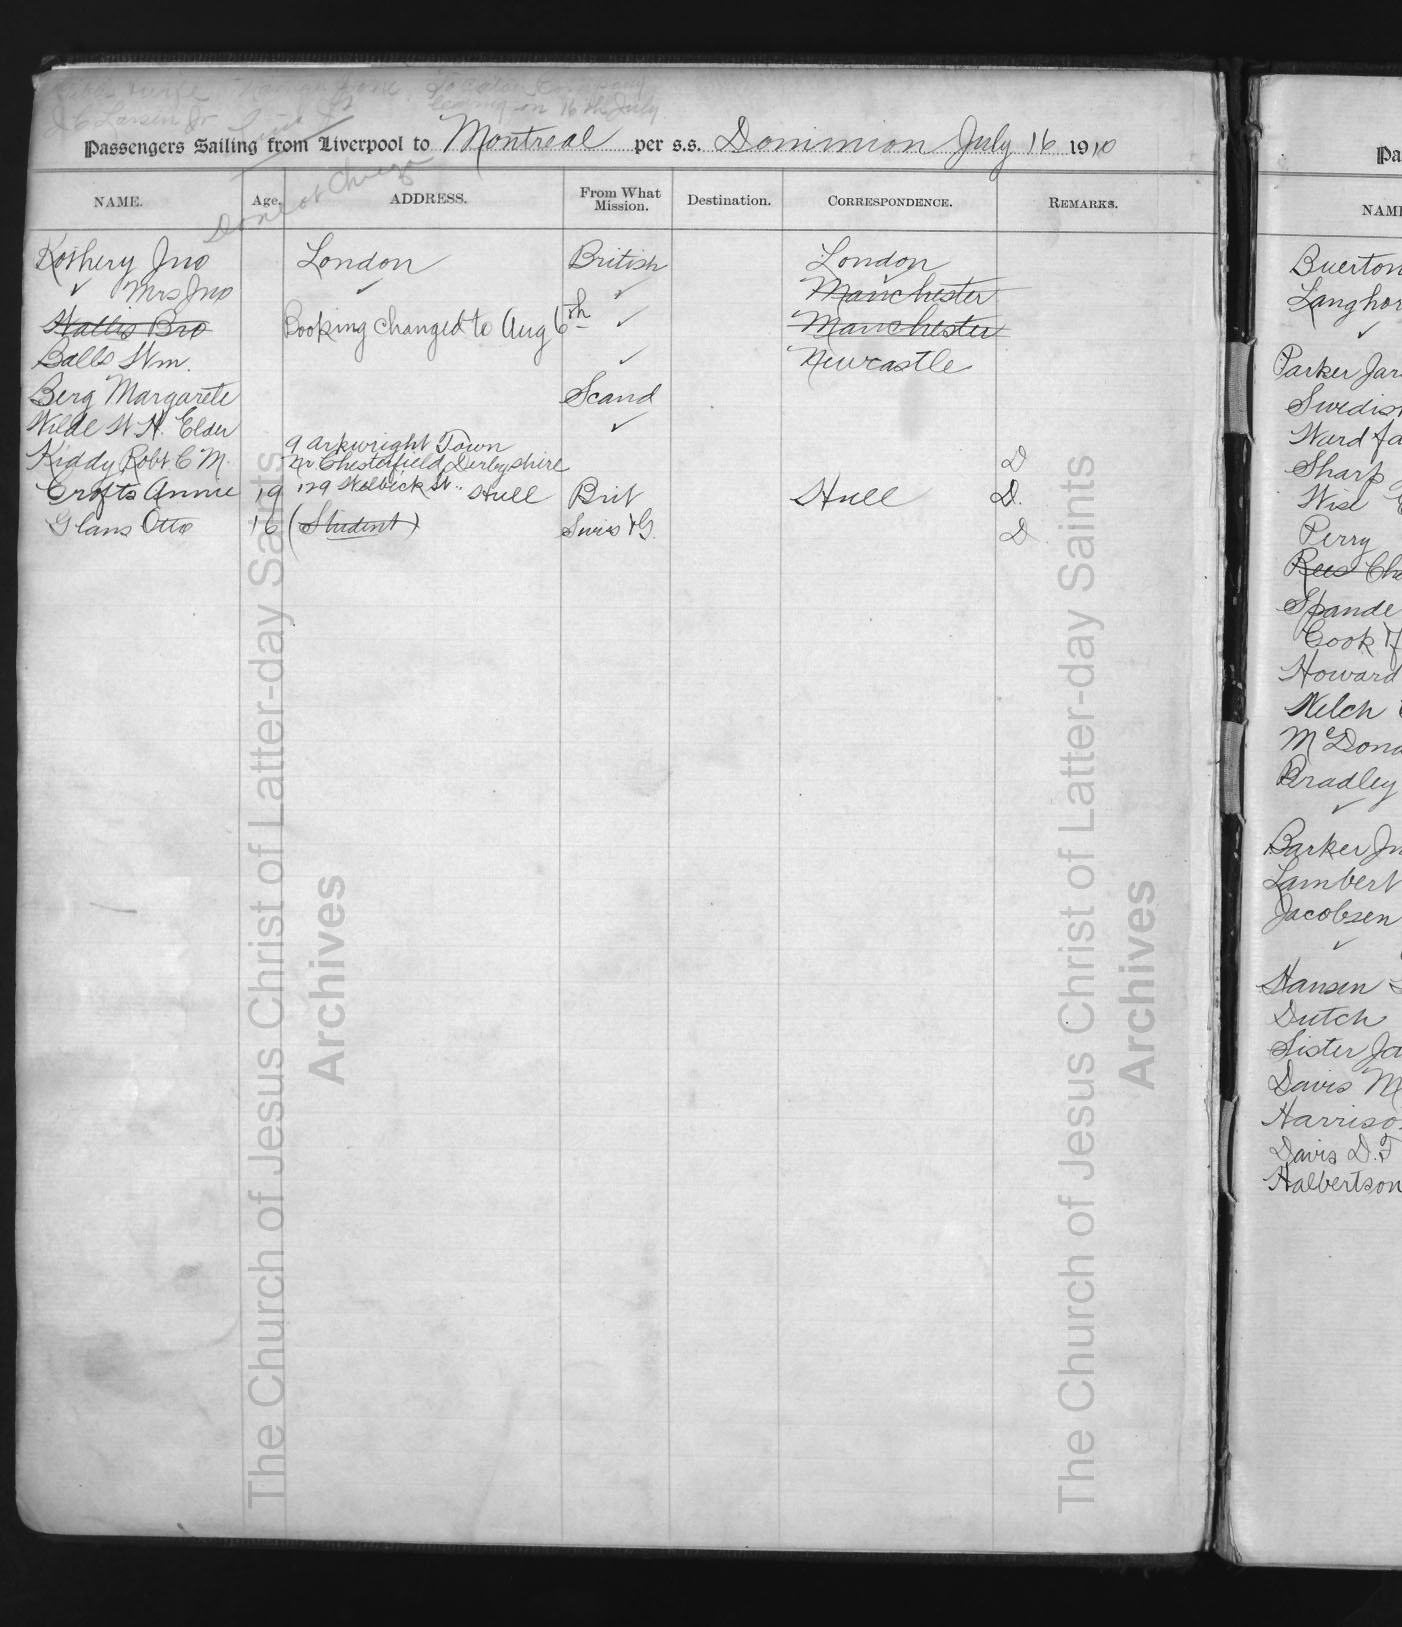 leaving on 16th July
J C Larsen Jr
Passengers Sailing from Liverpool to Montreal per s.s. Dominion July 16 1910
Do not Charge
NAME. Age. ADDRESS. From What Mission. Destination. CORRESPONDENCE. REMARKS.
Kothery Jno London British London
✓ Mrs Jno ✓ ✓ Manchester
Hallis Bro Booking changed to Aug 6th ✓ Manchester
Balls Wm. ✓ Newcastle
Berg Margarete Scand
Wilde W H. Elder ✓
9 Arkwright Town
Kiddy Robt C M. nr Chesterfield Derbyshire D
Crofts Annie 19 129 Welbeck St.. Hull Brit Hull D.
Glans Otto 16 (Student) Swis & G. D
Pa
NAME
Buerton
Langhor
✓
Parker Jar
Swedis
Ward Ja
Sharp
Wise
Perry
Rees Cha
Spande
Cook
Howard
Welch
McDona
Bradley
✓
Barker Jn
Lambert
Jacobsen
✓
Hansen
Dutch
Sister Ja
Davis M
Harriso
Davis D. T
Halbertson
The Church of Jesus Christ of Latter-day Saints
Archives
The Church of Jesus Christ of Latter-day Saints
Archives